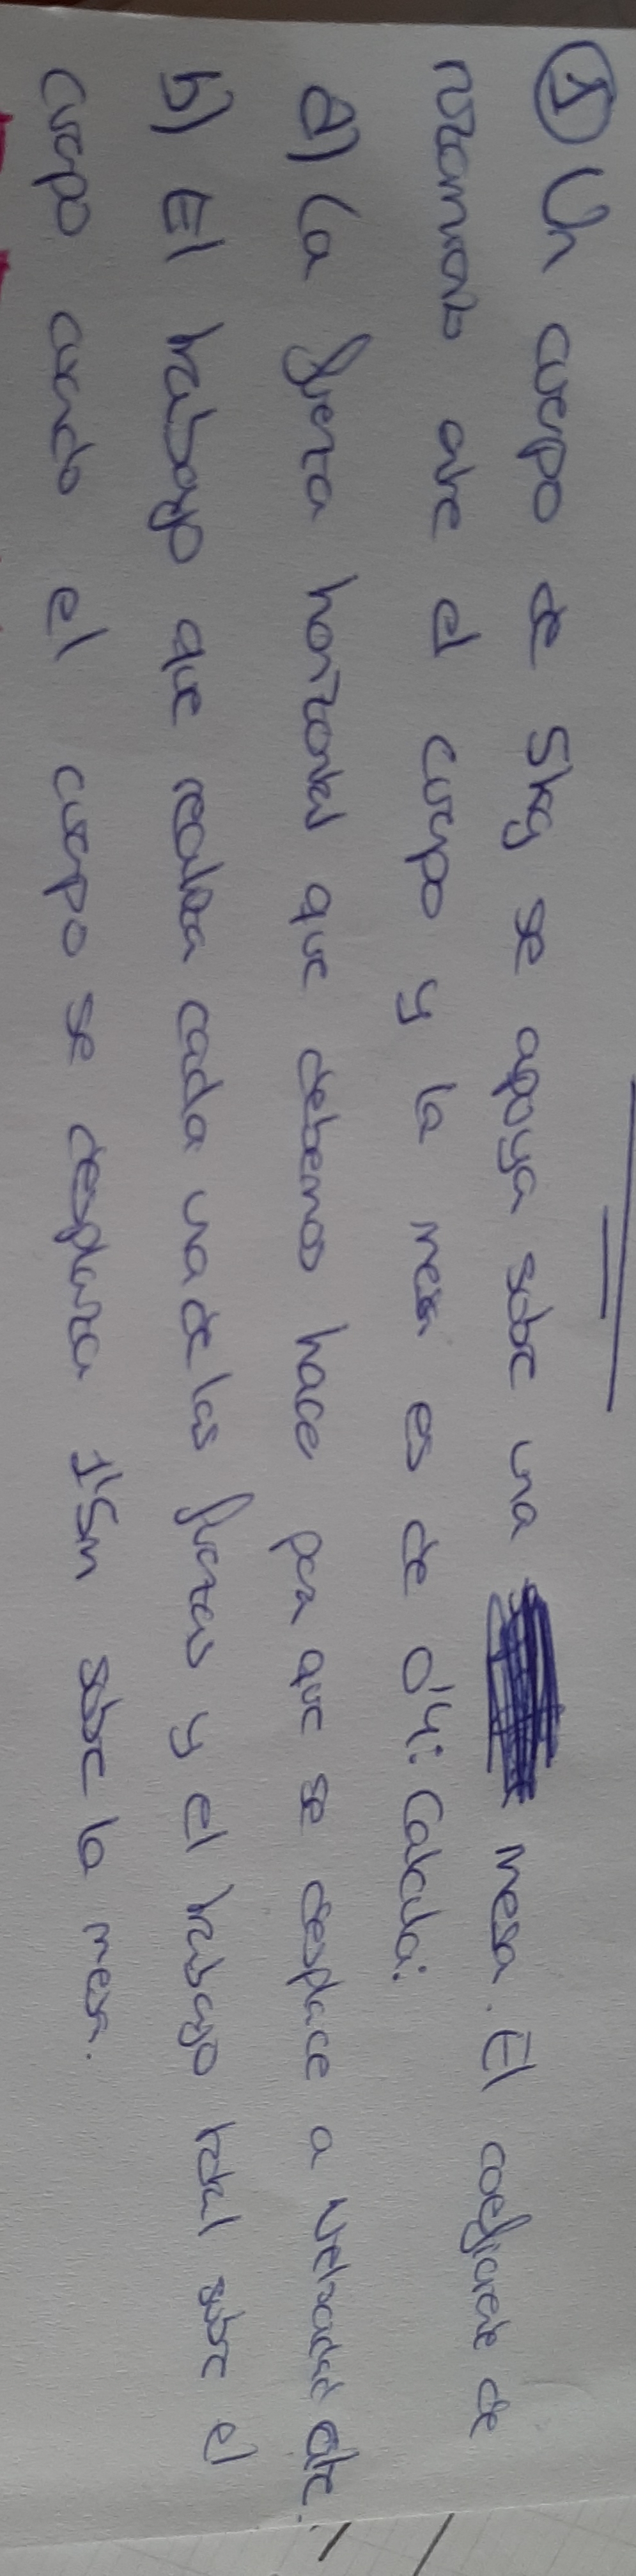 ① Un cuerpo de 5kg se apoya sobre una mesa. El coeficiente de
rozamiento entre el cuerpo y la mesa es de 0'4: Calcula:
a) La fuerza horizontal que debemos hacer para que se desplace a velocidad cte.
b) El trabajo que realiza cada una de las fuerzas y el trabajo total sobre el
cuerpo cuando el cuerpo se desplaza 1'5m sobre la mesa.